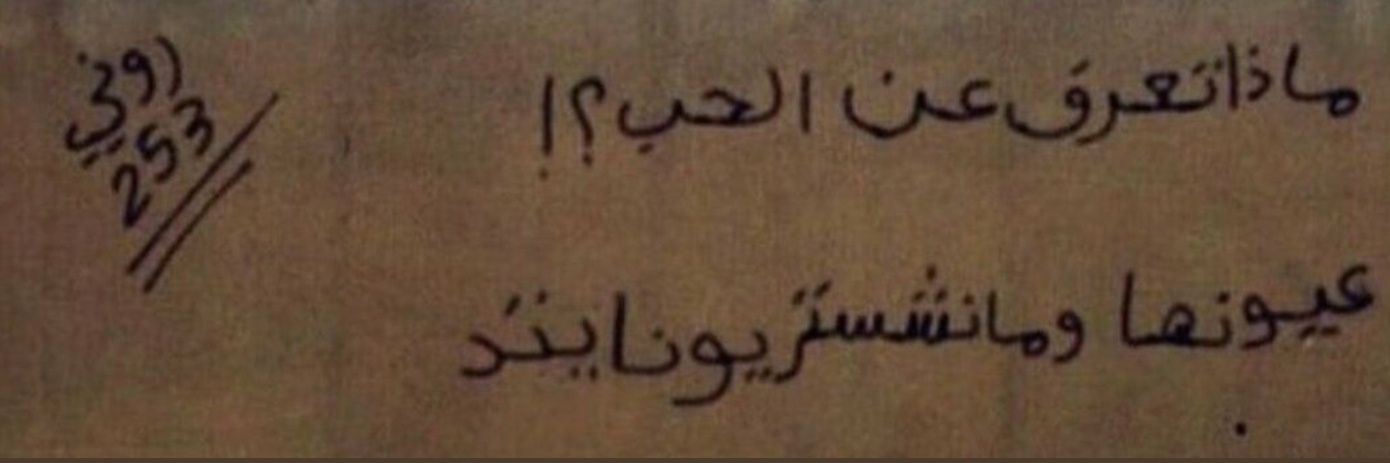 ماذا تعرف عن الحب؟!
عيونها ومانشستر يونايتد
روني
253